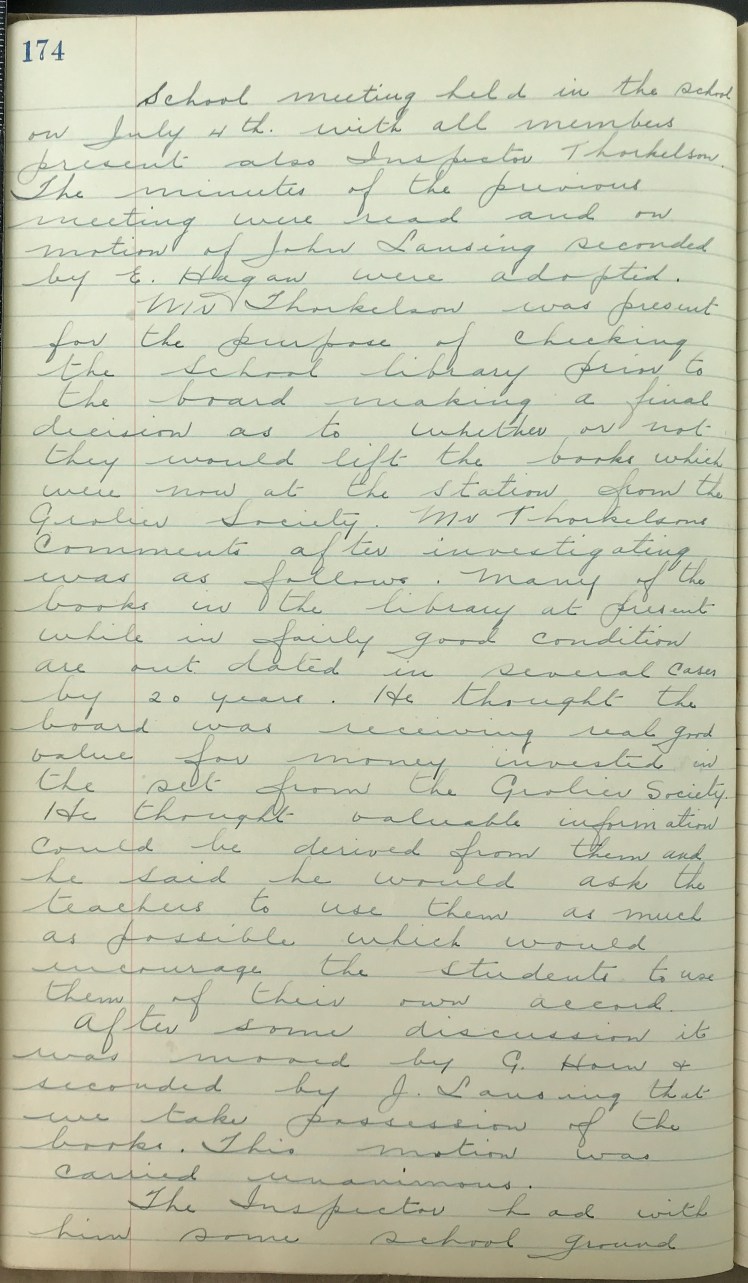 174
School meeting held in the school
on July 4th. with all members
present also Inspector Thorkelson.
The minutes of the previous
meeting were read and on
motion of John Lansing seconded
by E. Hagan were adopted.
Mr Thorkelson was present
for the purpose of checking
the school library prior to
the board making a final
decision as to whether or not
they would lift the books which
were now at the station from the
Grolier Society. Mr Thorkelsons
comments after investigating
was as follows. Many of the
books in the library at present
while in fairly good condition
are out dated in several cases
by 20 years. He thought the
board was receiving real good
value for money invested in
the set from the Grolier Society.
He thought valuable information
could be derived from them and
he said he would ask the
teachers to use them as much
as possible which would
encourage the students to use
them of their own accord.
After some discussion it
was moved by G. Horn &
seconded by J. Lansing that
we take possession of the
books. This motion was
carried unanimous.
The Inspector had with
him some school ground